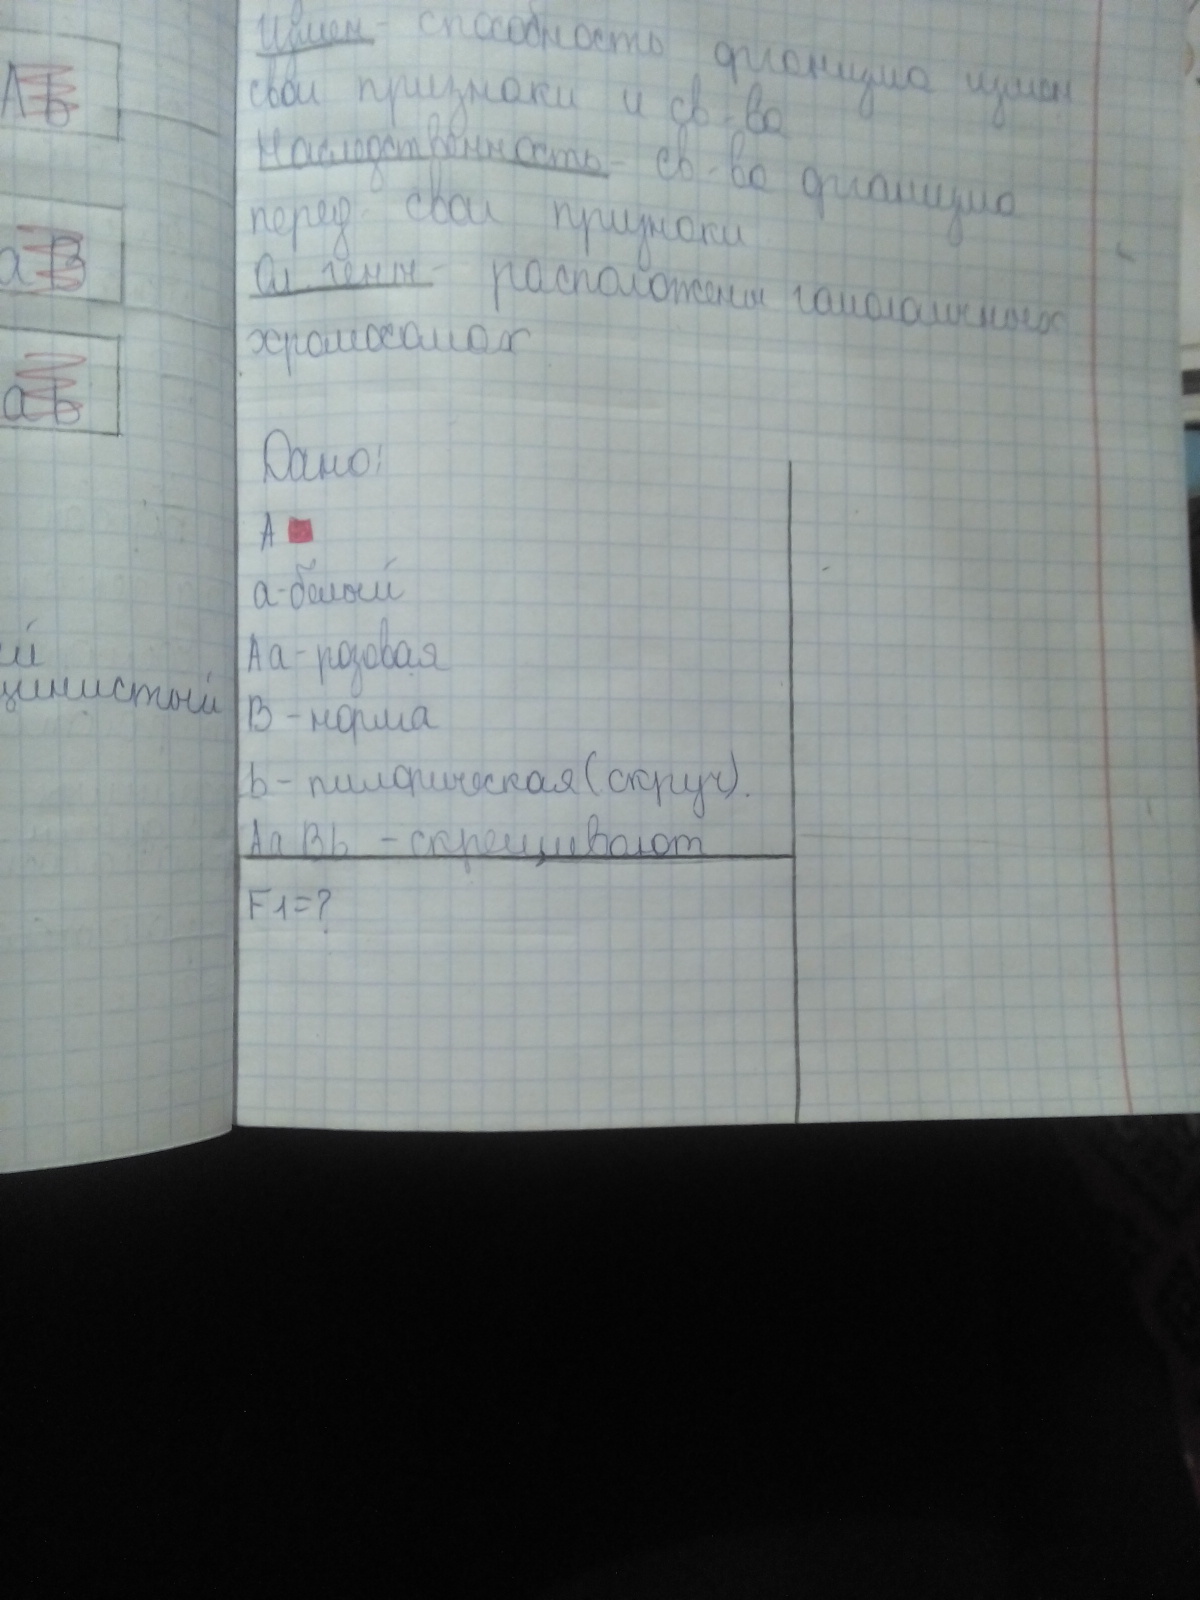 Ab
aB
ab
ий
щинистый
Измен - способность организма измен
свои признаки и св-ва
Наследственность - св-во организма
перед. свои признаки
Ал. гены - расположены гомологичных
хромосомах
Дано:
A
a-белый
Aa-розовая
B-норма
b-пилорическая (скруч).
AaBb - скрещивают
F1=?